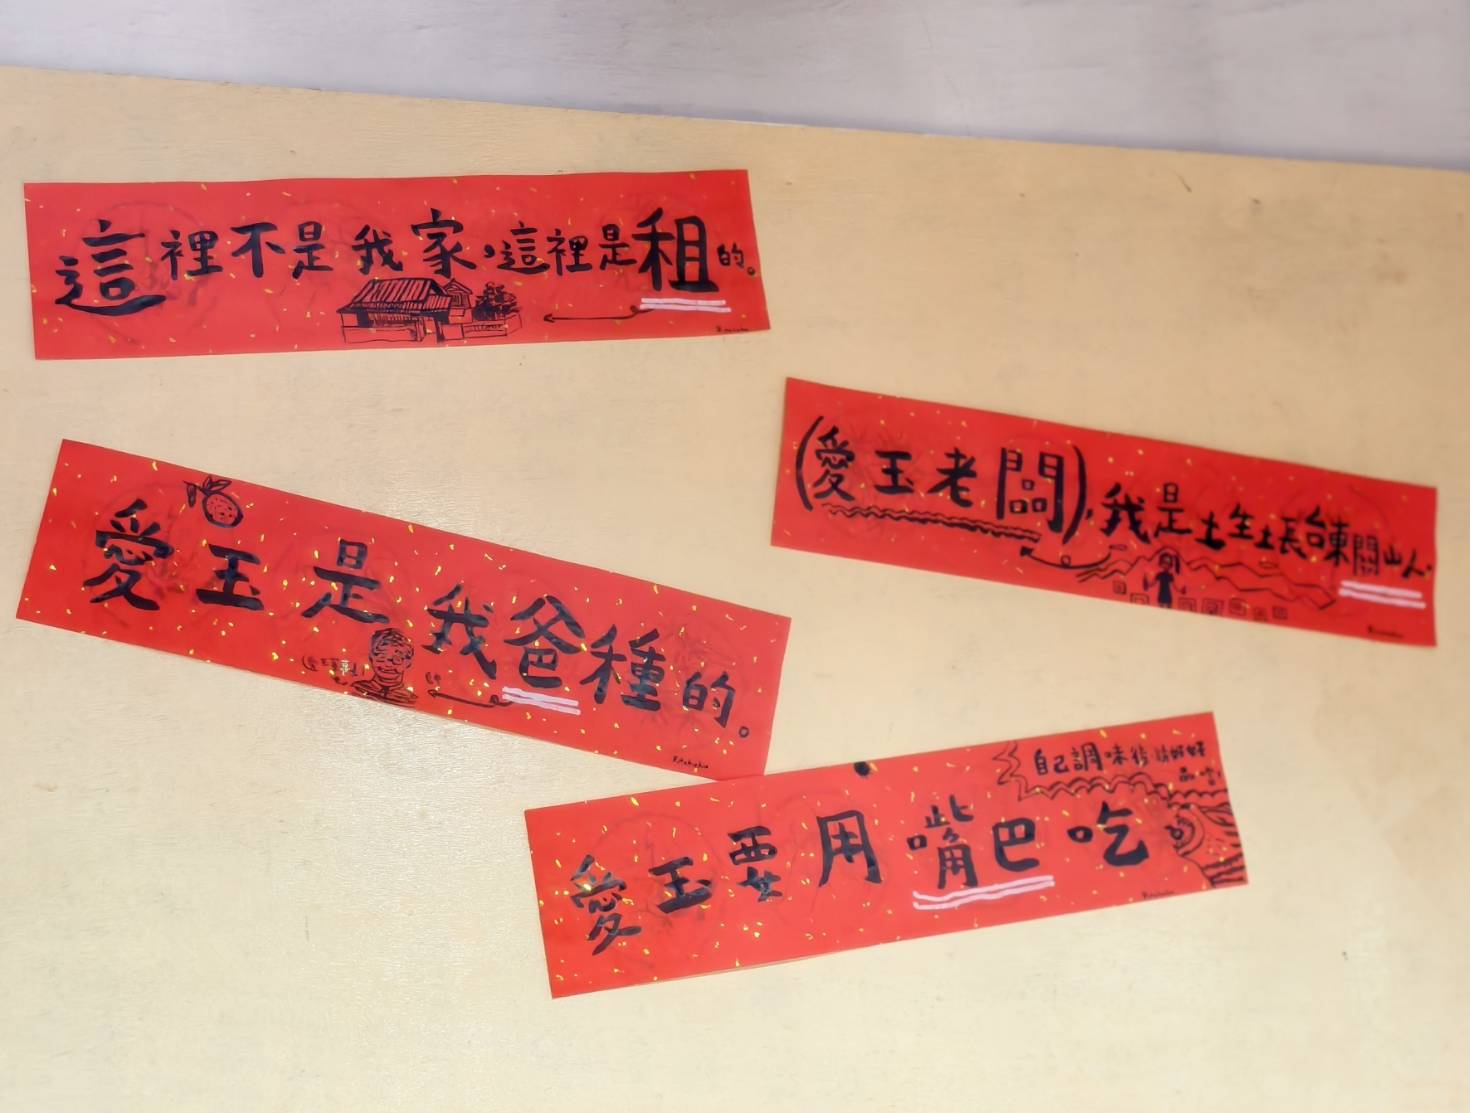 這裡不是我家，這裡是租的。
(愛玉老闆)，我是土生土長台東關山人。
愛玉是我爸種的。
愛玉要用嘴巴吃
自己調味後請好好
品嚐